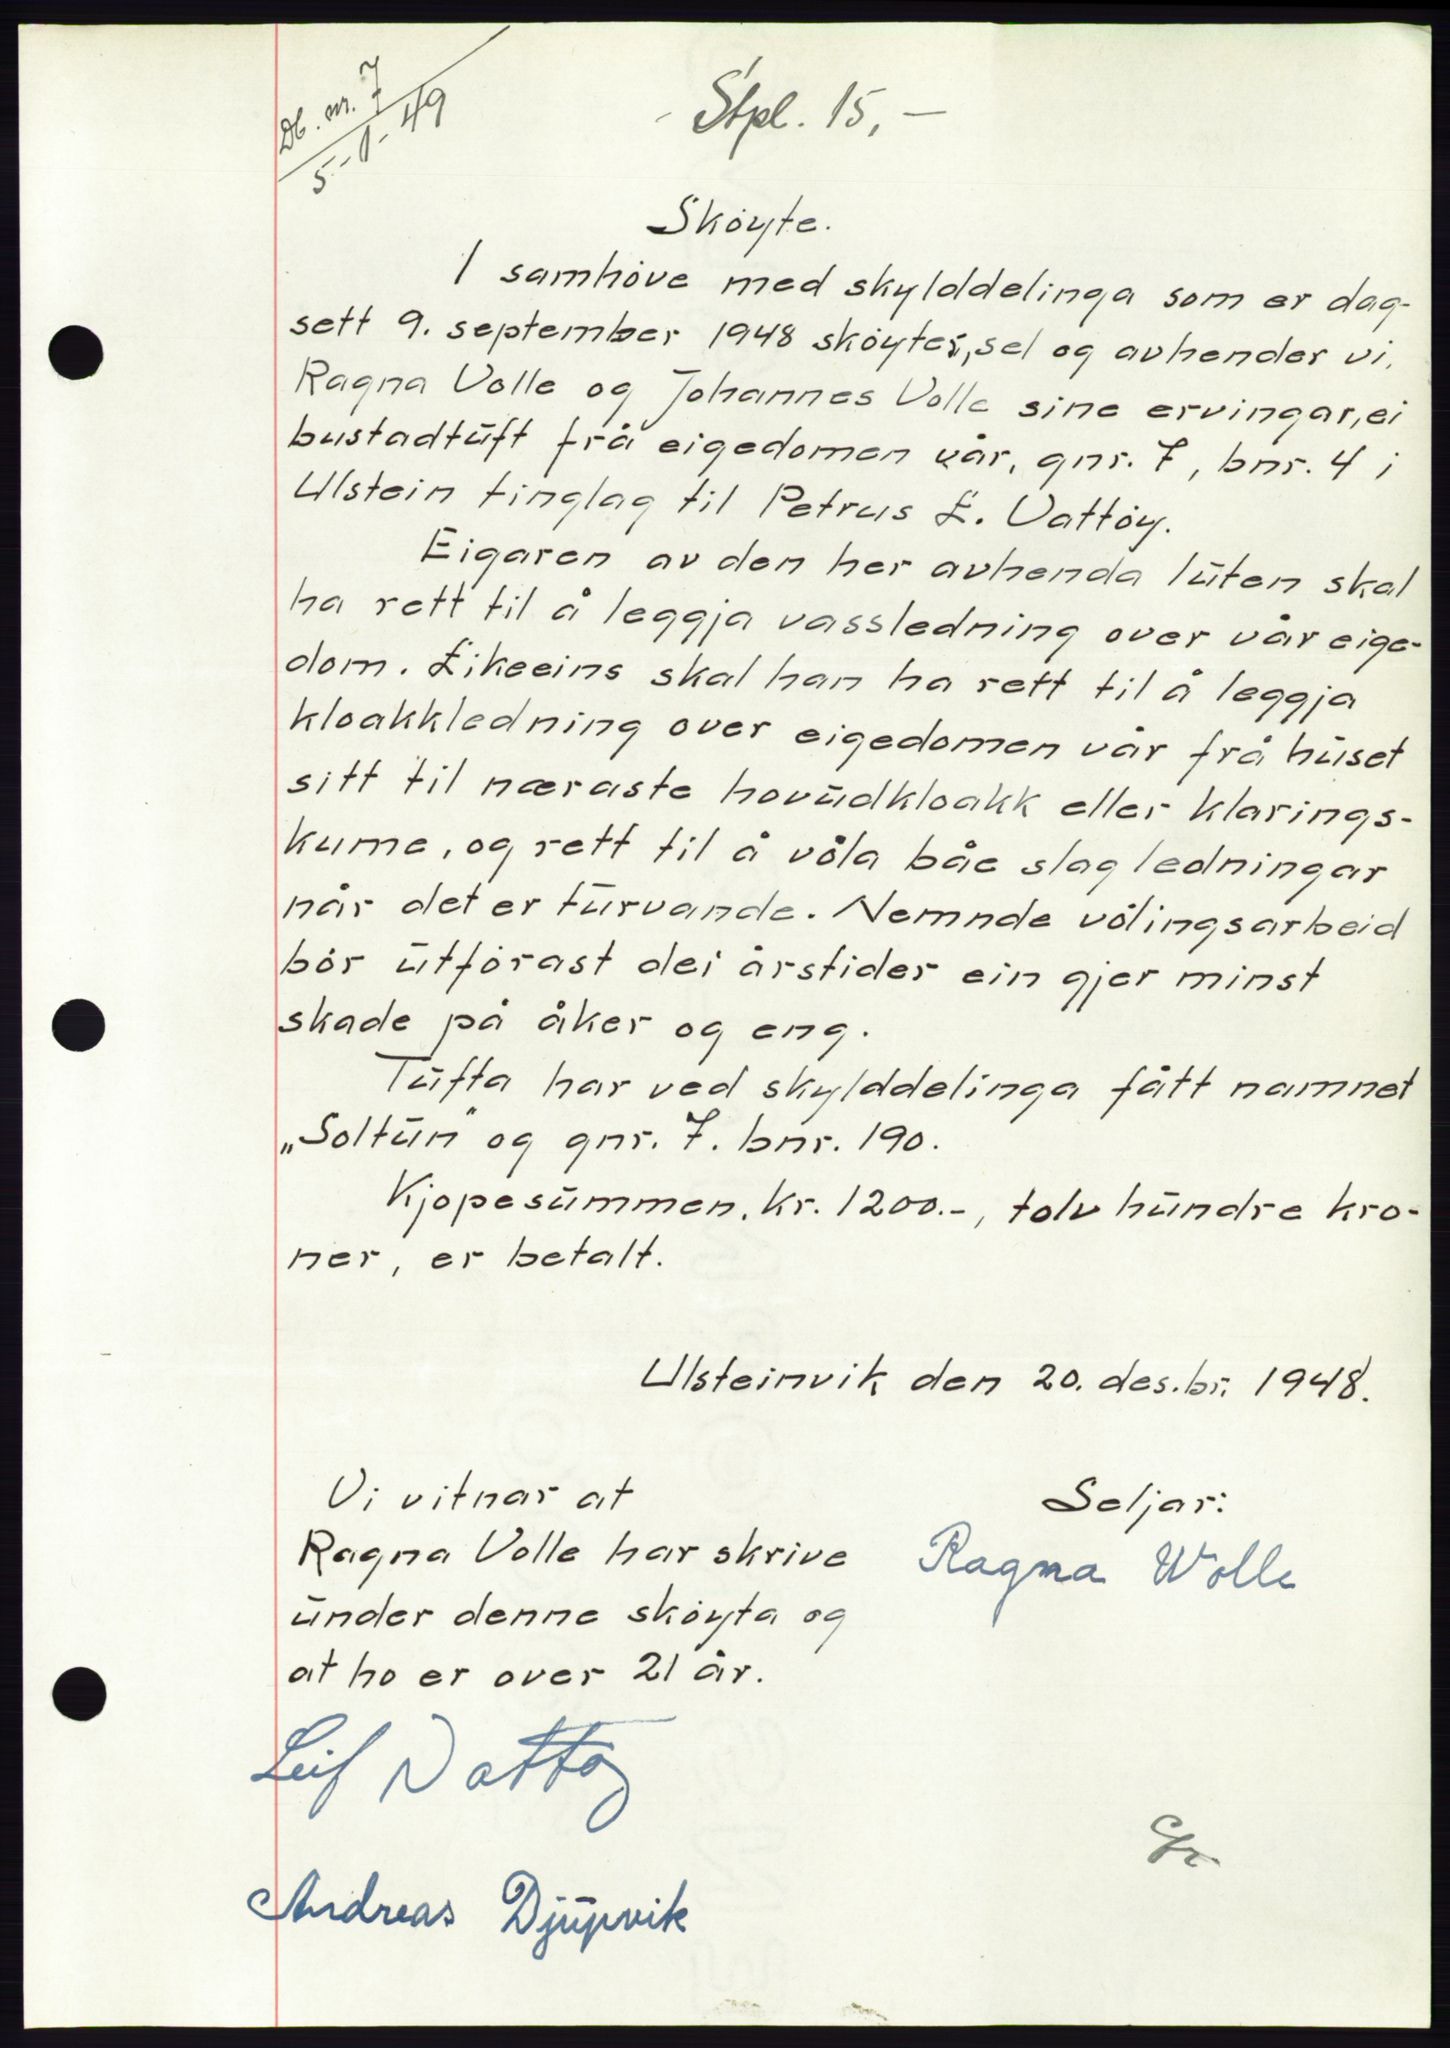 Db. nr. 7
5-1-49
Stpl. 15,-
Skøyte.
I samhøve med skylddelinga som er dag-
sett 9. september 1948 skøyter, sel og avhender vi,
Ragna Volle og Johannes Volle sine ervingar, ei
bustadtuft frå eigedomen vår, gnr. 7, bnr. 4 i
Ulstein tinglag til Petrus L. Vattøy.
Eigaren av den her avhenda luten skal
ha rett til å leggja vassledning over vår eige-
dom. Likeeins skal han ha rett til å leggja
kloakkledning over eigedomen vår frå huset
sitt til næraste hovudkloakk eller klarings-
kume, og rett til å vøla båe slag ledningar
når det er turvande. Nemnde vølingsarbeid
bør utførast dei årstider ein gjer minst
skade på åker og eng.
Tufta har ved skylddelinga fått namnet
„Soltun" og gnr. 7. bnr. 190.
Kjøpesummen, kr. 1200.-, tolv hundre kro-
ner, er betalt.
Ulsteinvik den 20. des.br. 1948.
Vi vitnar at
Ragna Volle har skrive
under denne skøyta og
at ho er over 21 år.
Seljar:
Ragna Wolle
Leif Vattøy
Andreas Djupvik